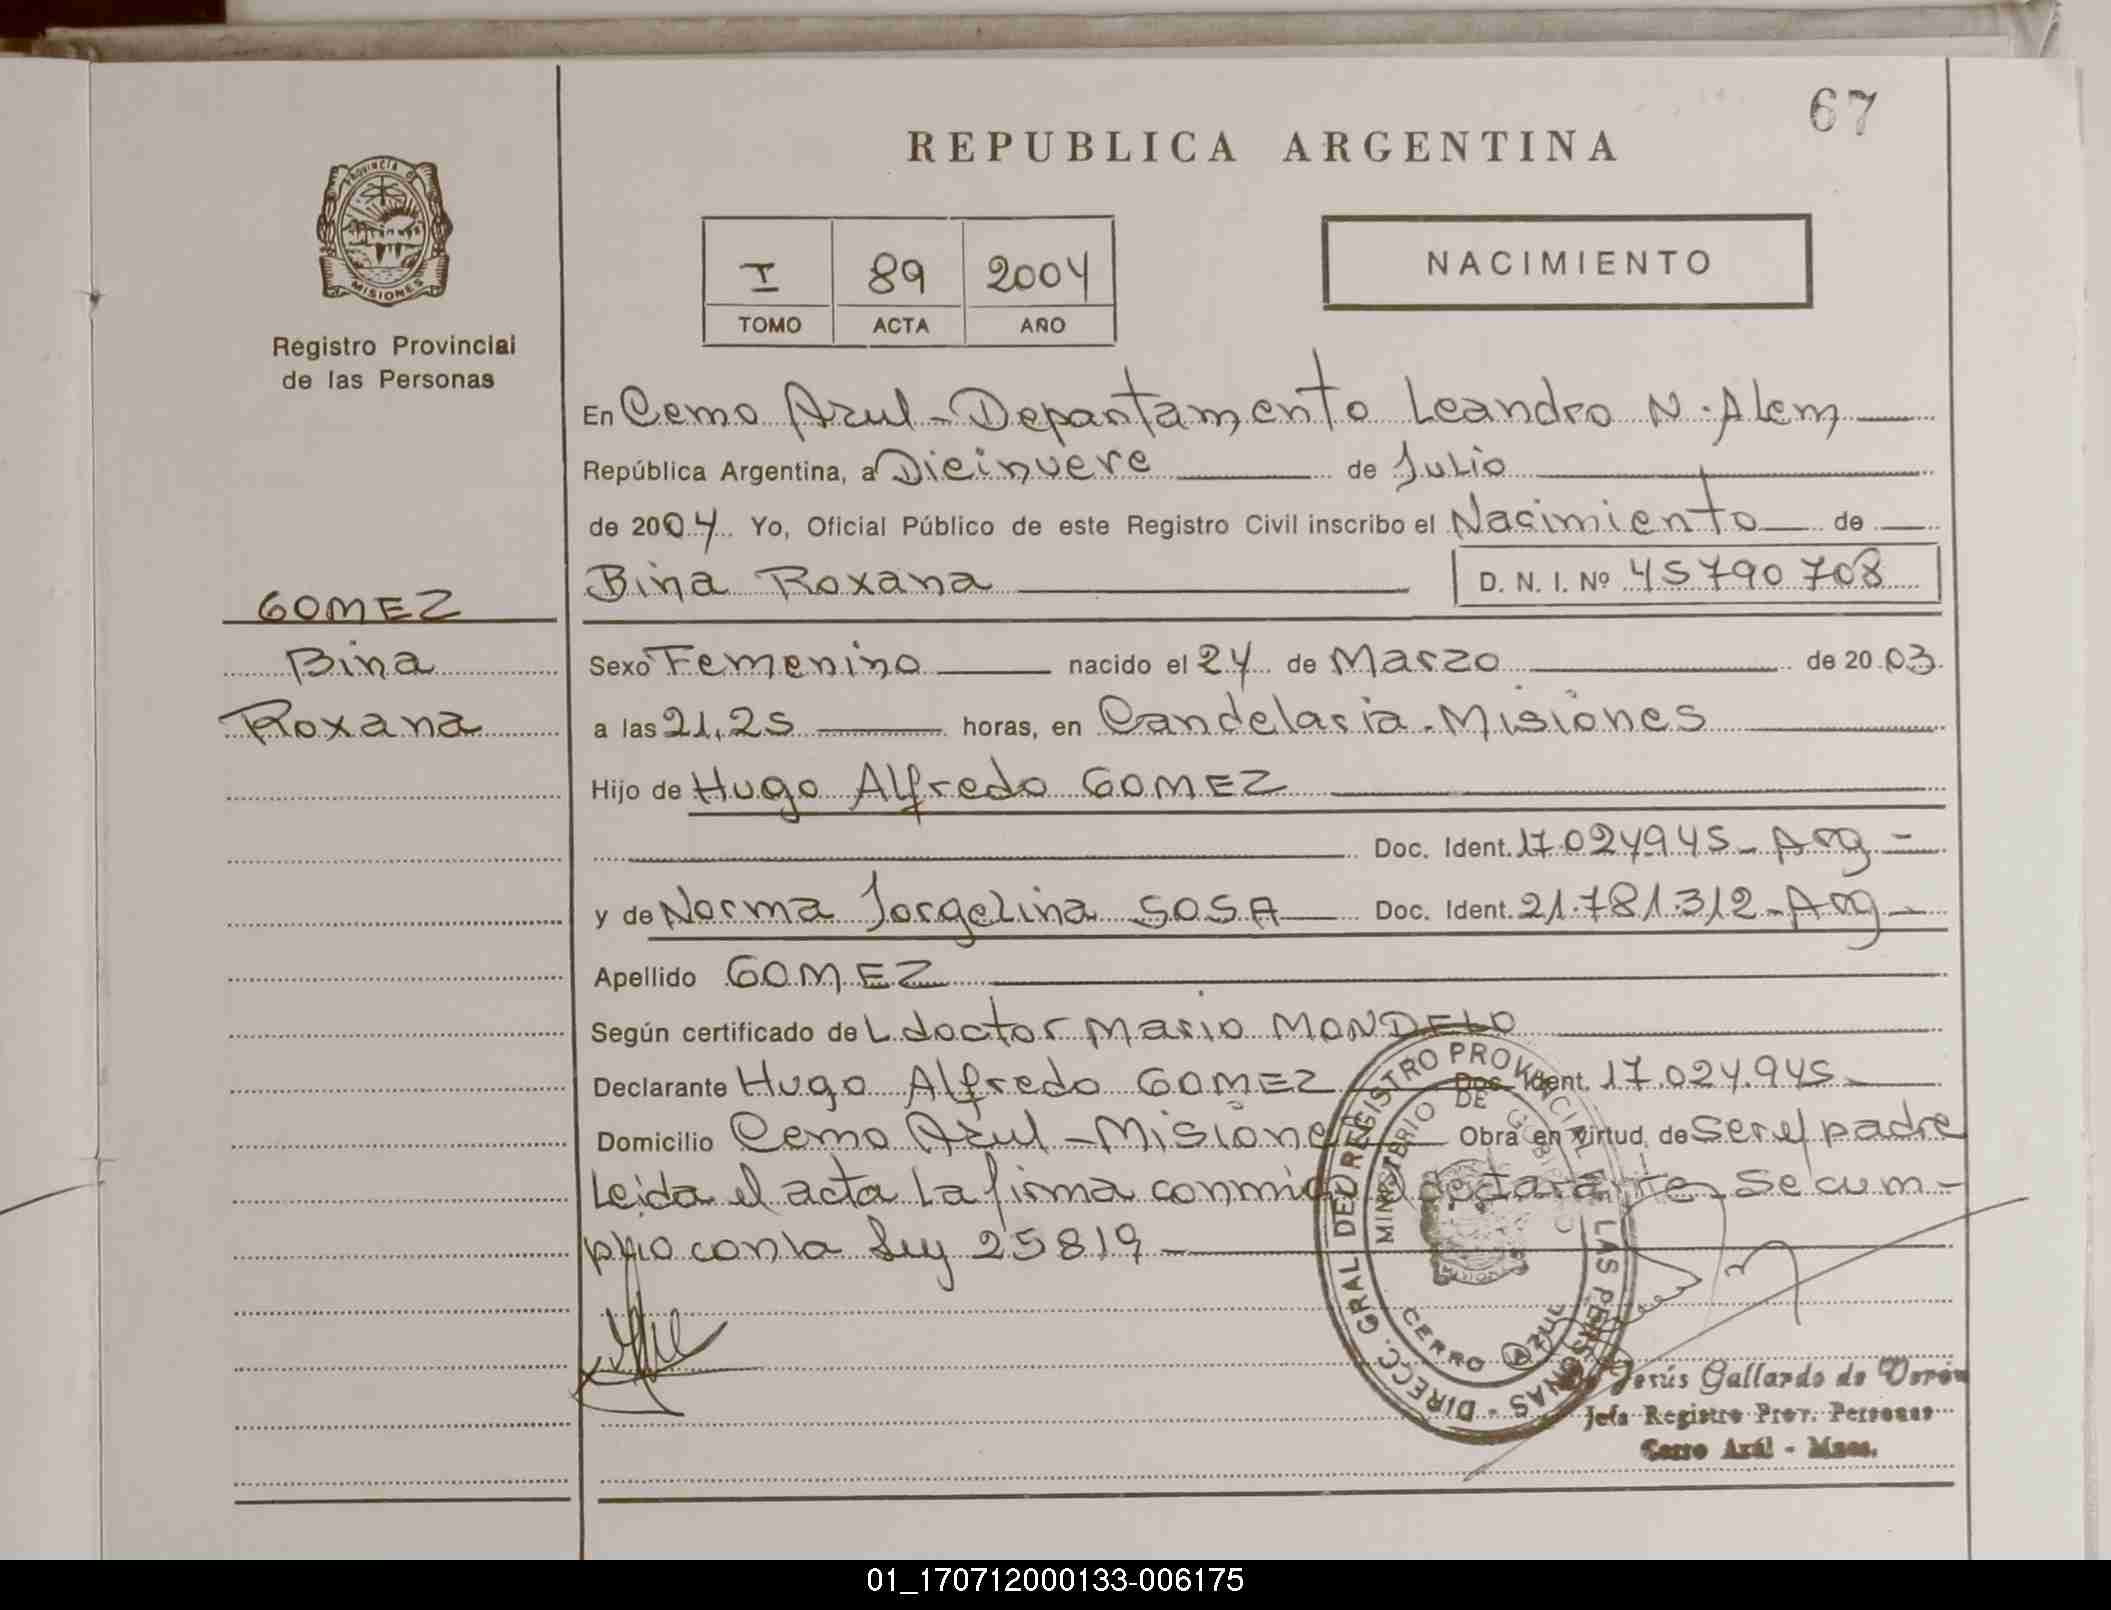 67
REPUBLICA ARGENTINA
PROVINCIA DE
MISIONES
Registro Provincial
de las Personas
I 89 2004
TOMO ACTA AÑO
NACIMIENTO
En Cerro Azul - Departamento Leandro N. Alem
República Argentina, a Diecinueve de Julio
de 2004 Yo, Oficial Público de este Registro Civil inscribo el Nacimiento de
Bina Roxana D. N. I. Nº 45790708
GOMEZ
Bina
Roxana
Sexo Femenino nacido el 24 de Marzo de 2003
a las 21,25 horas, en Candelaria - Misiones
Hijo de Hugo Alfredo GOMEZ
Doc. Ident. 17.024945 - Arg -
y de Norma Jorgelina SOSA Doc. Ident. 21.781.312 - Arg -
Apellido GOMEZ
Según certificado de L doctor Mario MONDELO
Declarante Hugo Alfredo GOMEZ Doc. Ident. 17.024.945
Domicilio Cerro Azul - Misiones Obra en virtud de ser el padre
Leida el acta la firma conmigo el declarante. Se cum-
plio con la Ley 25819
DIRECC. GRAL DEL REGISTRO PROVINCIAL DE LAS PERSONAS -
MINISTERIO DE GOBIERNO
CERRO AZUL
Jesús Gallardo de Verón
Jefa Registro Prov. Personas
Cerro Azúl - Mnes.
01_170712000133-006175